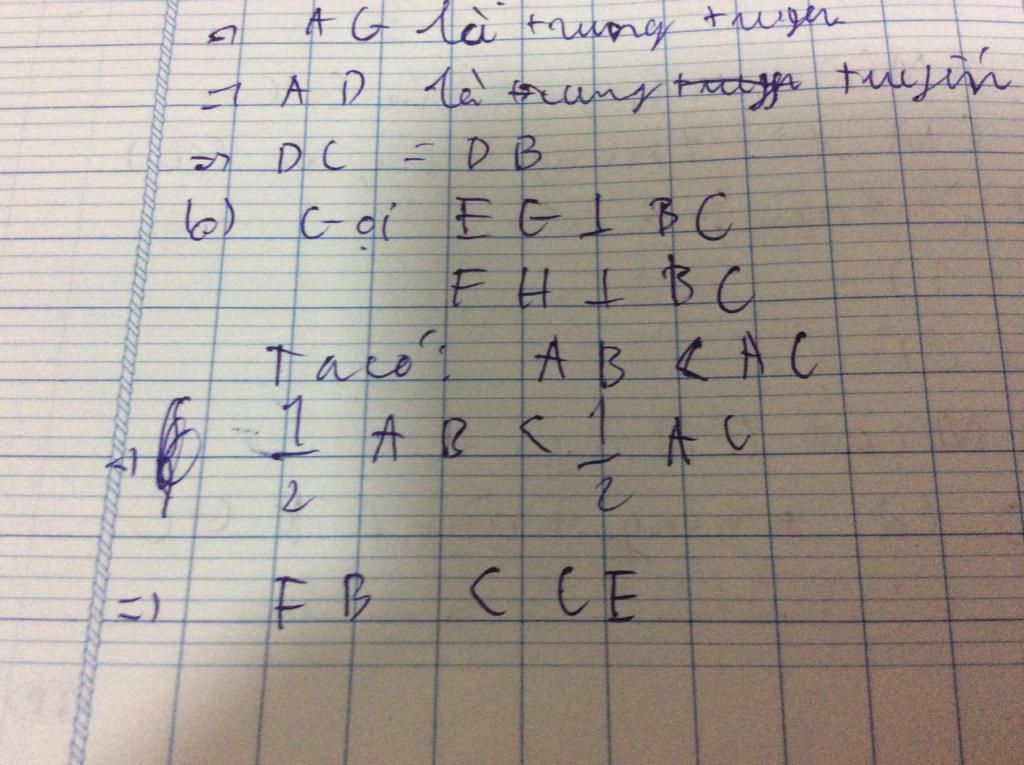 => AG là trung tuyen
=> AD là trung tuyến
=> DC = DB
b) Gọi EG ⊥ BC
FH ⊥ BC
Ta có: AB < AC
=> 1/2 AB < 1/2 AC
=> FB < CE